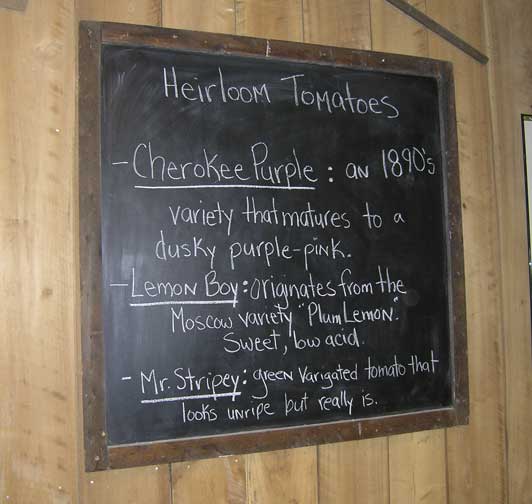 Heirloom Tomatoes
- Cherokee Purple: an 1890's
variety that matures to a
dusky purple-pink.
- Lemon Boy: originates from the
Moscow variety "Plum Lemon".
Sweet, low acid.
- Mr. Stripey: green varigated tomato that
looks unripe but really is.